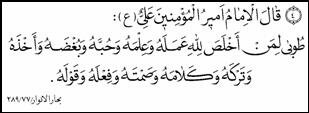 ﴿٤﴾ قَالَ الْاِمَامُ اَمِيرُ الْمُؤْمِنِينَ عَلِيٌّ (ع) :
طُوبٰى لِمَنْ اَخْلَصَ لِلّٰهِ عَمَلَهُ وَعِلْمَهُ وَحُبَّهُ وَبُغْضَهُ وَاَخْذَهُ
وَتَرْكَهُ وَكَلَامَهُ وَصَمْتَهُ وَفِعْلَهُ وَقَوْلَهُ .
بحار الانوار ٢٨٩/٧٧